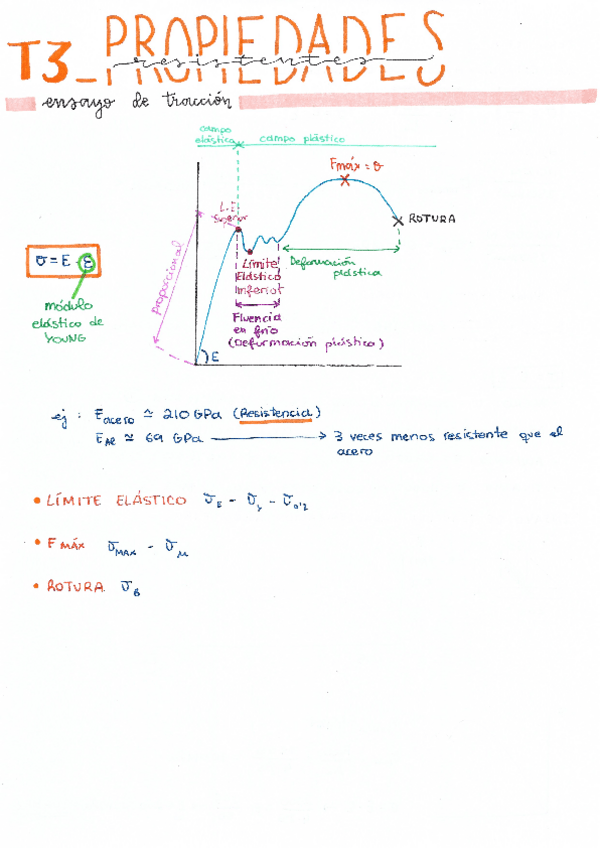 T3_PROPIEDADES
resistentes
ensayo de tracción
campo
elástico
campo plástico
Fmáx = σ
L.E
Superior
ROTURA
proporcional
σ = E · ε
Límite
Elástico
Inferior
Deformación
plástica
módulo
elástico de
YOUNG
Fluencia
en frío
(Deformación plástica)
E
ej: Eacero ≃ 210 GPa (Resistencia)
EAl ≃ 69 GPa → 3 veces menos resistente que el
acero
• LÍMITE ELÁSTICO σE - σy - σ0'2
• F MÁX σMAX - σu
• ROTURA σB